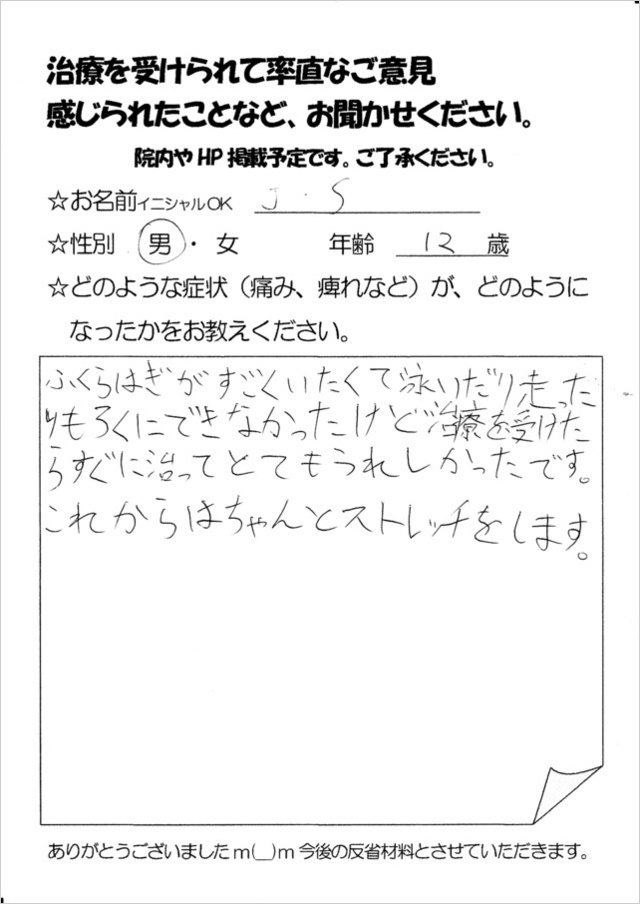 治療を受けられて率直なご意見
感じられたことなど、お聞かせください。
院内やHP掲載予定です。ご了承ください。
☆お名前イニシャルOK J・S
☆性別 男・女 年齢 12 歳
☆どのような症状（痛み、痺れなど）が、どのように
なったかをお教えください。
ふくらはぎがすごくいたくて泳いだり走った
りもろくにできなかったけど治療を受けた
らすぐに治ってとてもうれしかったです。
これからはちゃんとストレッチをします。
ありがとうございましたm(__)m今後の反省材料とさせていただきます。